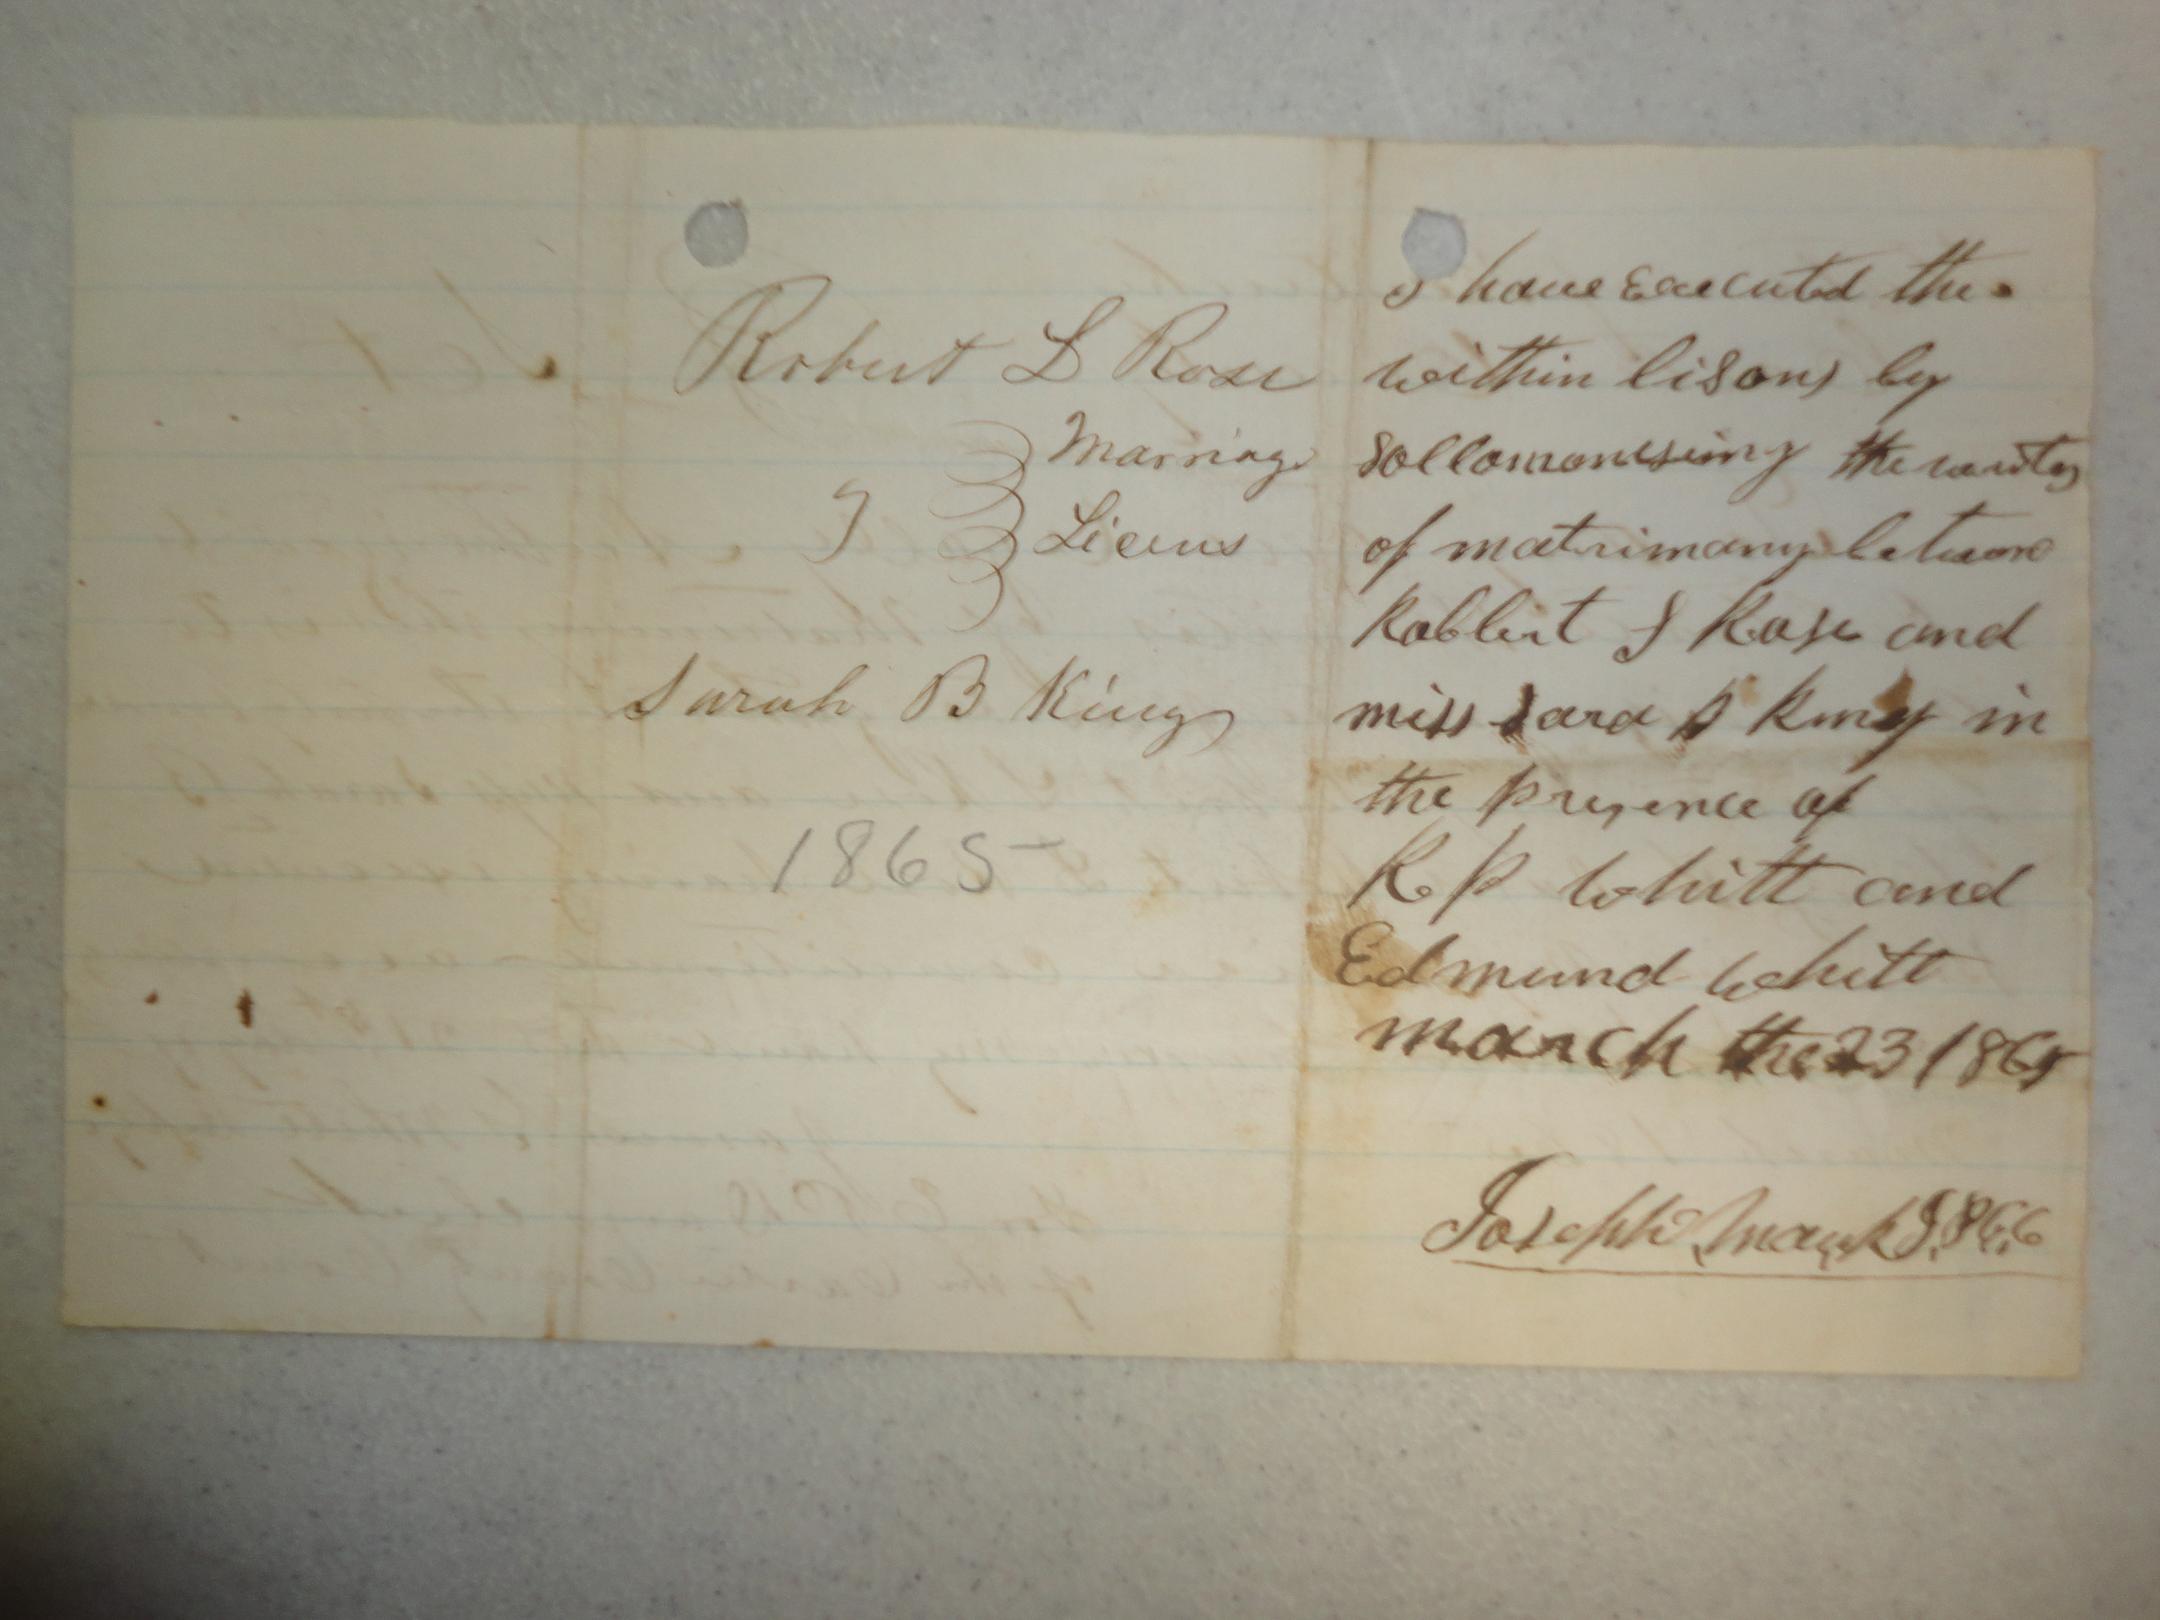 Robert L Rose
Marriage
Licens
Sarah B King
1865
I have Executed the
within lisons by
sollomonising the
of matrimany between
Robbert S Rose and
miss Sara B King in
the presence of
R P Whitt and
Edmund Whitt
march the 23 1865
Joseph